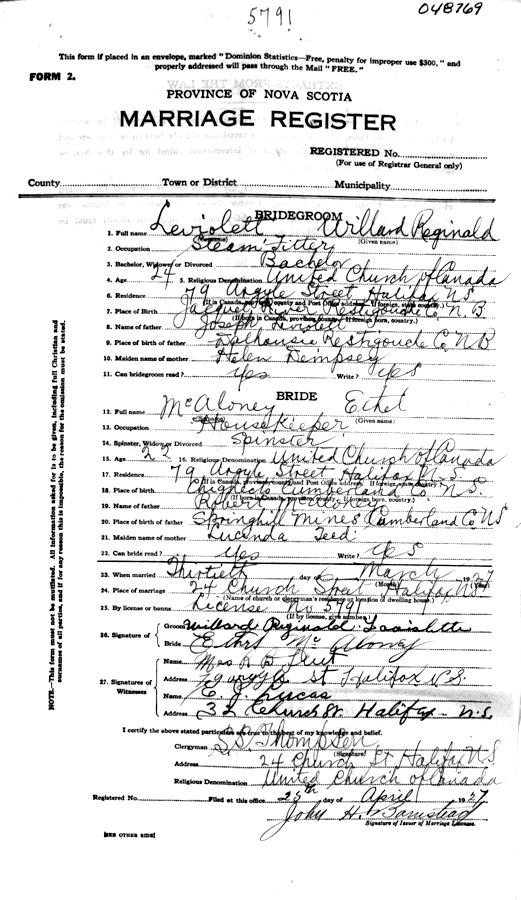 5791
048769
This form if placed in an envelope, marked "Dominion Statistics—Free, penalty for improper use $300," and
properly addressed will pass through the Mail "FREE."
FORM 2.
PROVINCE OF NOVA SCOTIA
MARRIAGE REGISTER
REGISTERED No.
(For use of Registrar General only)
County Town or District Municipality
BRIDEGROOM
1. Full name Leviolett Willard Reginald
(Given name)
2. Occupation Steam Fitter
3. Bachelor, Widower or Divorced Bachelor
4. Age 24 5. Religious Denomination United Church of Canada
6. Residence 79 Argyle Street Halifax N.S.
7. Place of Birth Jacquet River Restigouche Co. N.B.
8. Name of father Joseph Leviolett
9. Place of birth of father Dalhousie Restigouche Co N.B.
10. Maiden name of mother Helen Dempsey
11. Can bridegroom read? yes Write? yes
BRIDE
12. Full name McAloney Ethel
(Given name)
13. Occupation Housekeeper
14. Spinster, Widow or Divorced Spinster
15. Age 22 16. Religious Denomination United Church of Canada
17. Residence 79 Argyle Street Halifax N.S.
18. Place of birth Cumberland Co. N.S.
19. Name of father Robert McAloney
20. Place of birth of father Springhill Mines Cumberland Co NS
21. Maiden name of mother Lucinda Teed
22. Can bride read? yes Write? yes
23. When married Thirtieth day of March 1927
(Month)
24. Place of marriage 24 Church Street Halifax NS
(Name of church or clergyman's residence or location of dwelling house.)
25. By license or banns License No 5791
(If by license, give number)
26. Signature of
Groom Willard Reginald
Bride Ethel McAloney
27. Signatures of Witnesses
Name Mrs
Address 79 Argyle St Halifax N.S.
Name Lucas
Address 32 Church St. Halifax - N.S.
I certify the above stated particulars are true to the best of my knowledge and belief.
Clergyman Thompson
(Signature)
Address 24 Church St Halifax N.S.
Religious Denomination United Church of Canada
Registered No. Filed at this office 25th day of April 1927
John H.
Signature of Issuer of Marriage Licenses.
[SEE OTHER SIDE]
NOTE—This form must not be mutilated. All information asked for is to be given, including full Christian and
surnames of all parties, and if for any reason this is impossible, the reason for the omission must be stated.